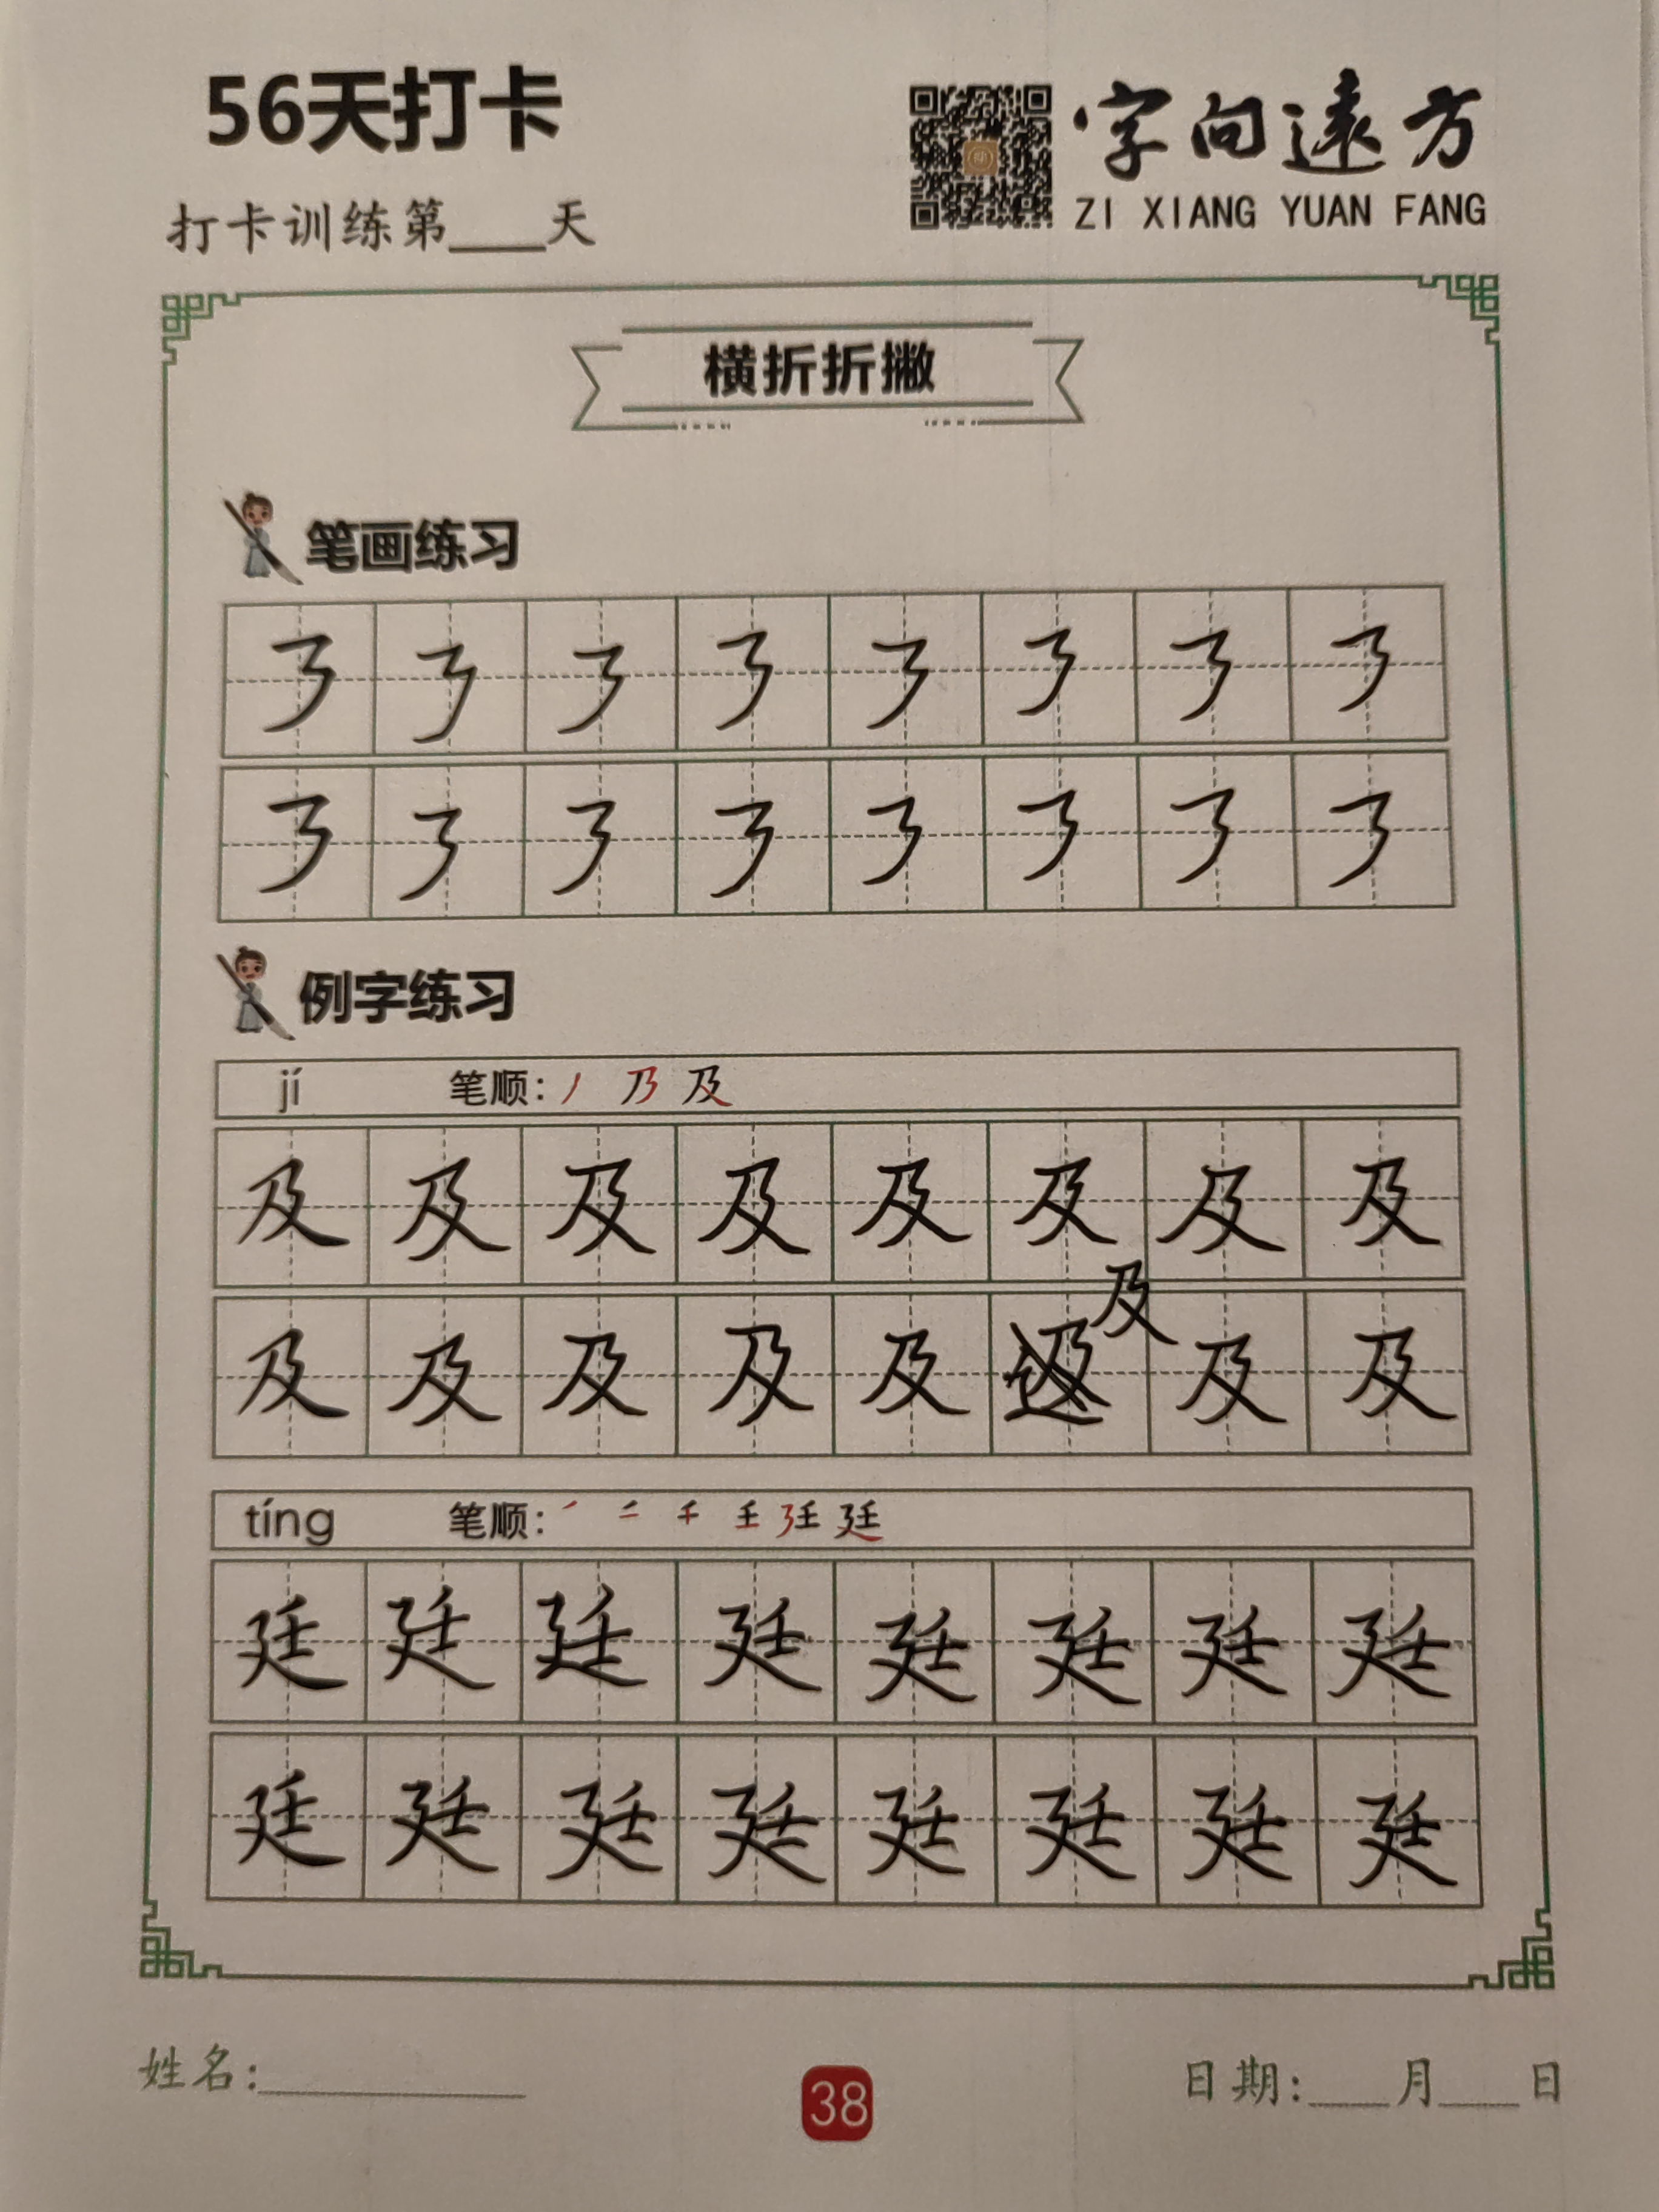 56天打卡
字向遠方
ZI XIANG YUAN FANG
打卡训练第____天
横折折撇
笔画练习
㇋ ㇋ ㇋ ㇋ ㇋ ㇋ ㇋ ㇋
㇋ ㇋ ㇋ ㇋ ㇋ ㇋ ㇋ ㇋
例字练习
jí 笔顺：丿 乃 及
及 及 及 及 及 及 及 及
及
及 及 及 及 及 及 及
tíng 笔顺：
廷 廷 廷 廷 廷 廷 廷 廷
廷 廷 廷 廷 廷 廷 廷 廷
姓名：__________
38
日期：___月___日